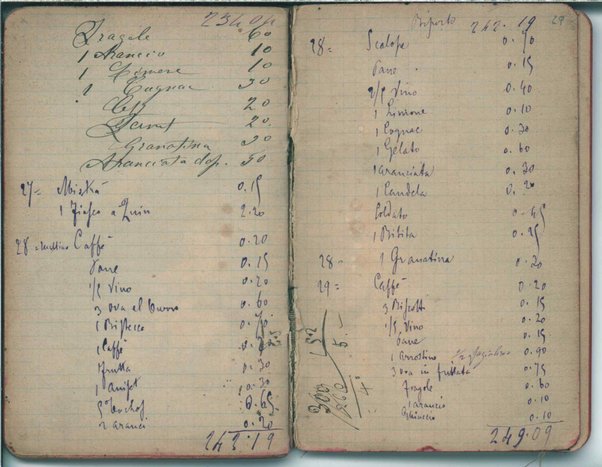 234.09
Fragole 60
1 Arancio 10
1 Limone 10
1 Cognac 30
20
20
Granatina 30
Aranciata dop. 50
27= 0.15
1 Fiasco a 2.20
28= Mattino Caffè 0.20
Pane 0.15
1/5 Vino 0.20
3 ova al burro 0.60
1 Bistecca
1 Caffè
frutta 0.30
1 0.30
0.65
2 aranci 0.20
243.19
Riporto 242.19 29
28= Scalopp
Pane 0.15
2/5 Vino 0.40
1 Limone 0.10
1 Cognac 0.30
1 Gelato 0.60
1 aranciata 0.30
1 Candela 0.20
Soldato 0.45
1 Bibita 0.25
28= 1 Granatina 0.20
29= Caffè 0.20
3 Biscott 0.15
1/5 Vino 0.20
Pane 0.15
1 arrostino 0.90
3 ova in frittata 0.75
Fragole 0.60
1 arancio 0.10
Ghiaccio 0.10
249.09
300